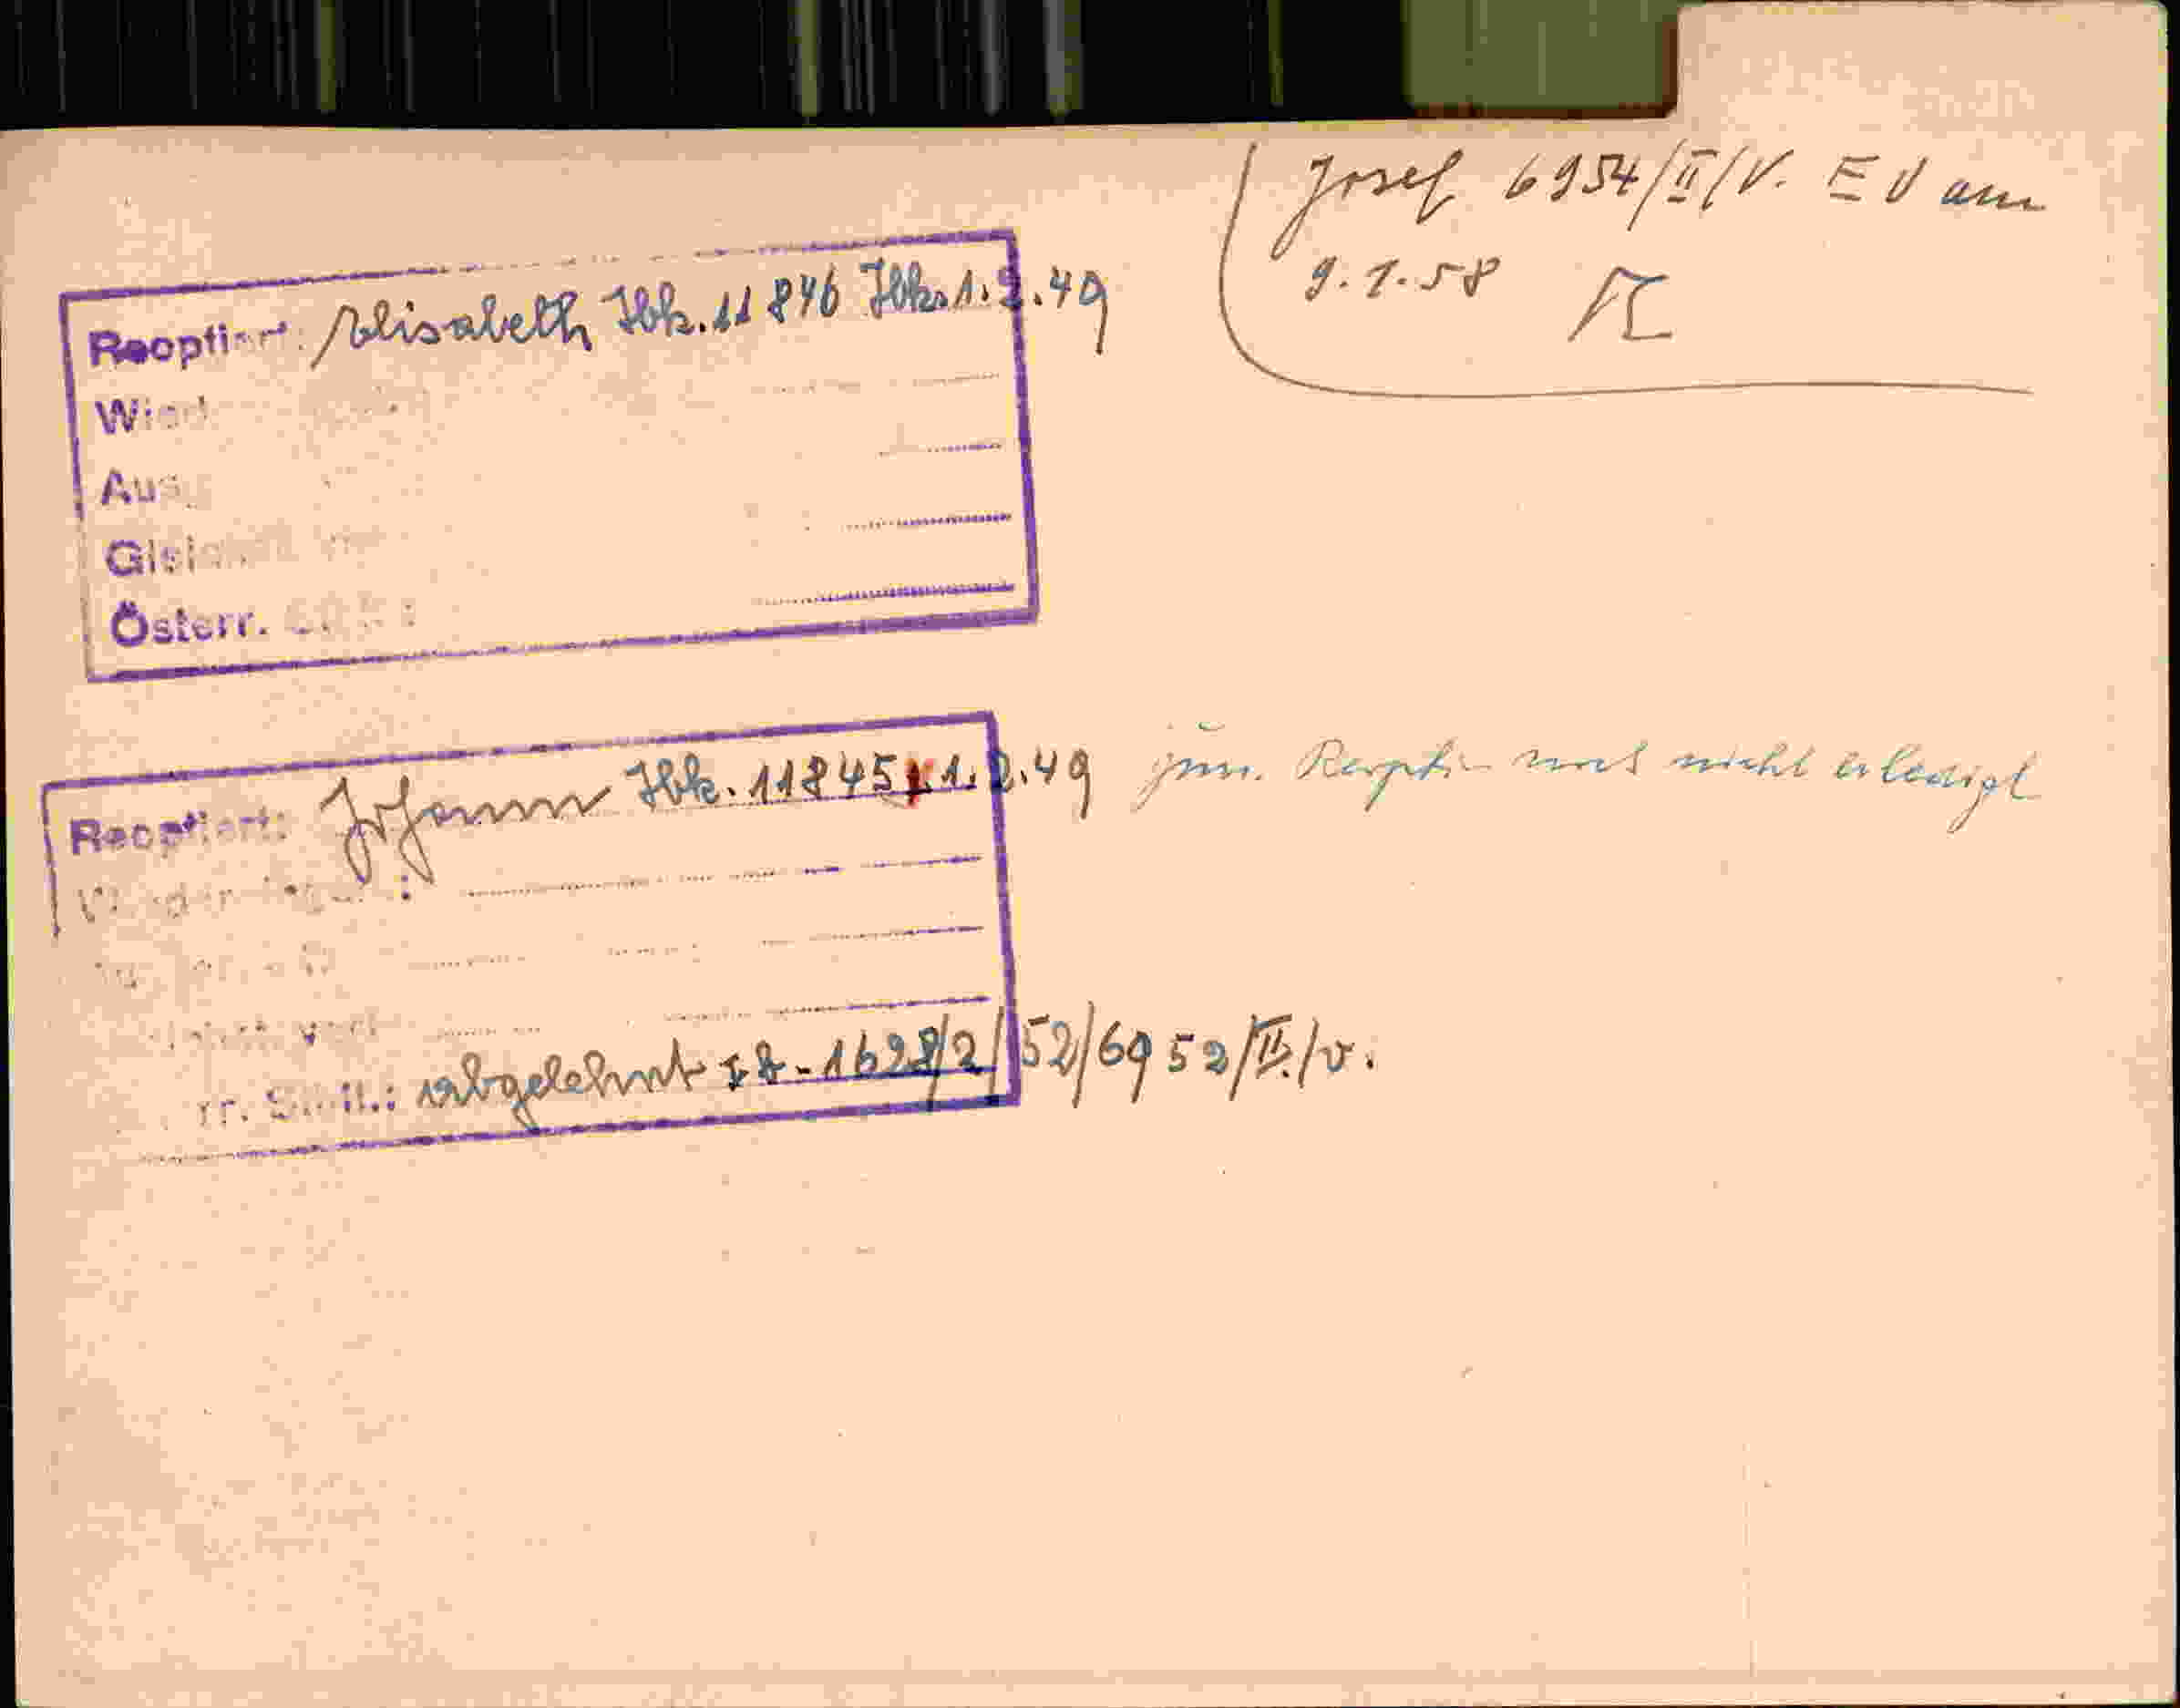 Josef 6954/II/V. EV am
9.1.58
Reoptiert: Elisabeth Ibk. 11846 Ibk. 1.2.49
Wied
Aus
Gleichst
Österr.
Reoptiert: Johann Ibk. 11845 1.2.49 jun. Reoption noch nicht erledigt
abgelehnt I8-1628/2/52/6952/II./v.